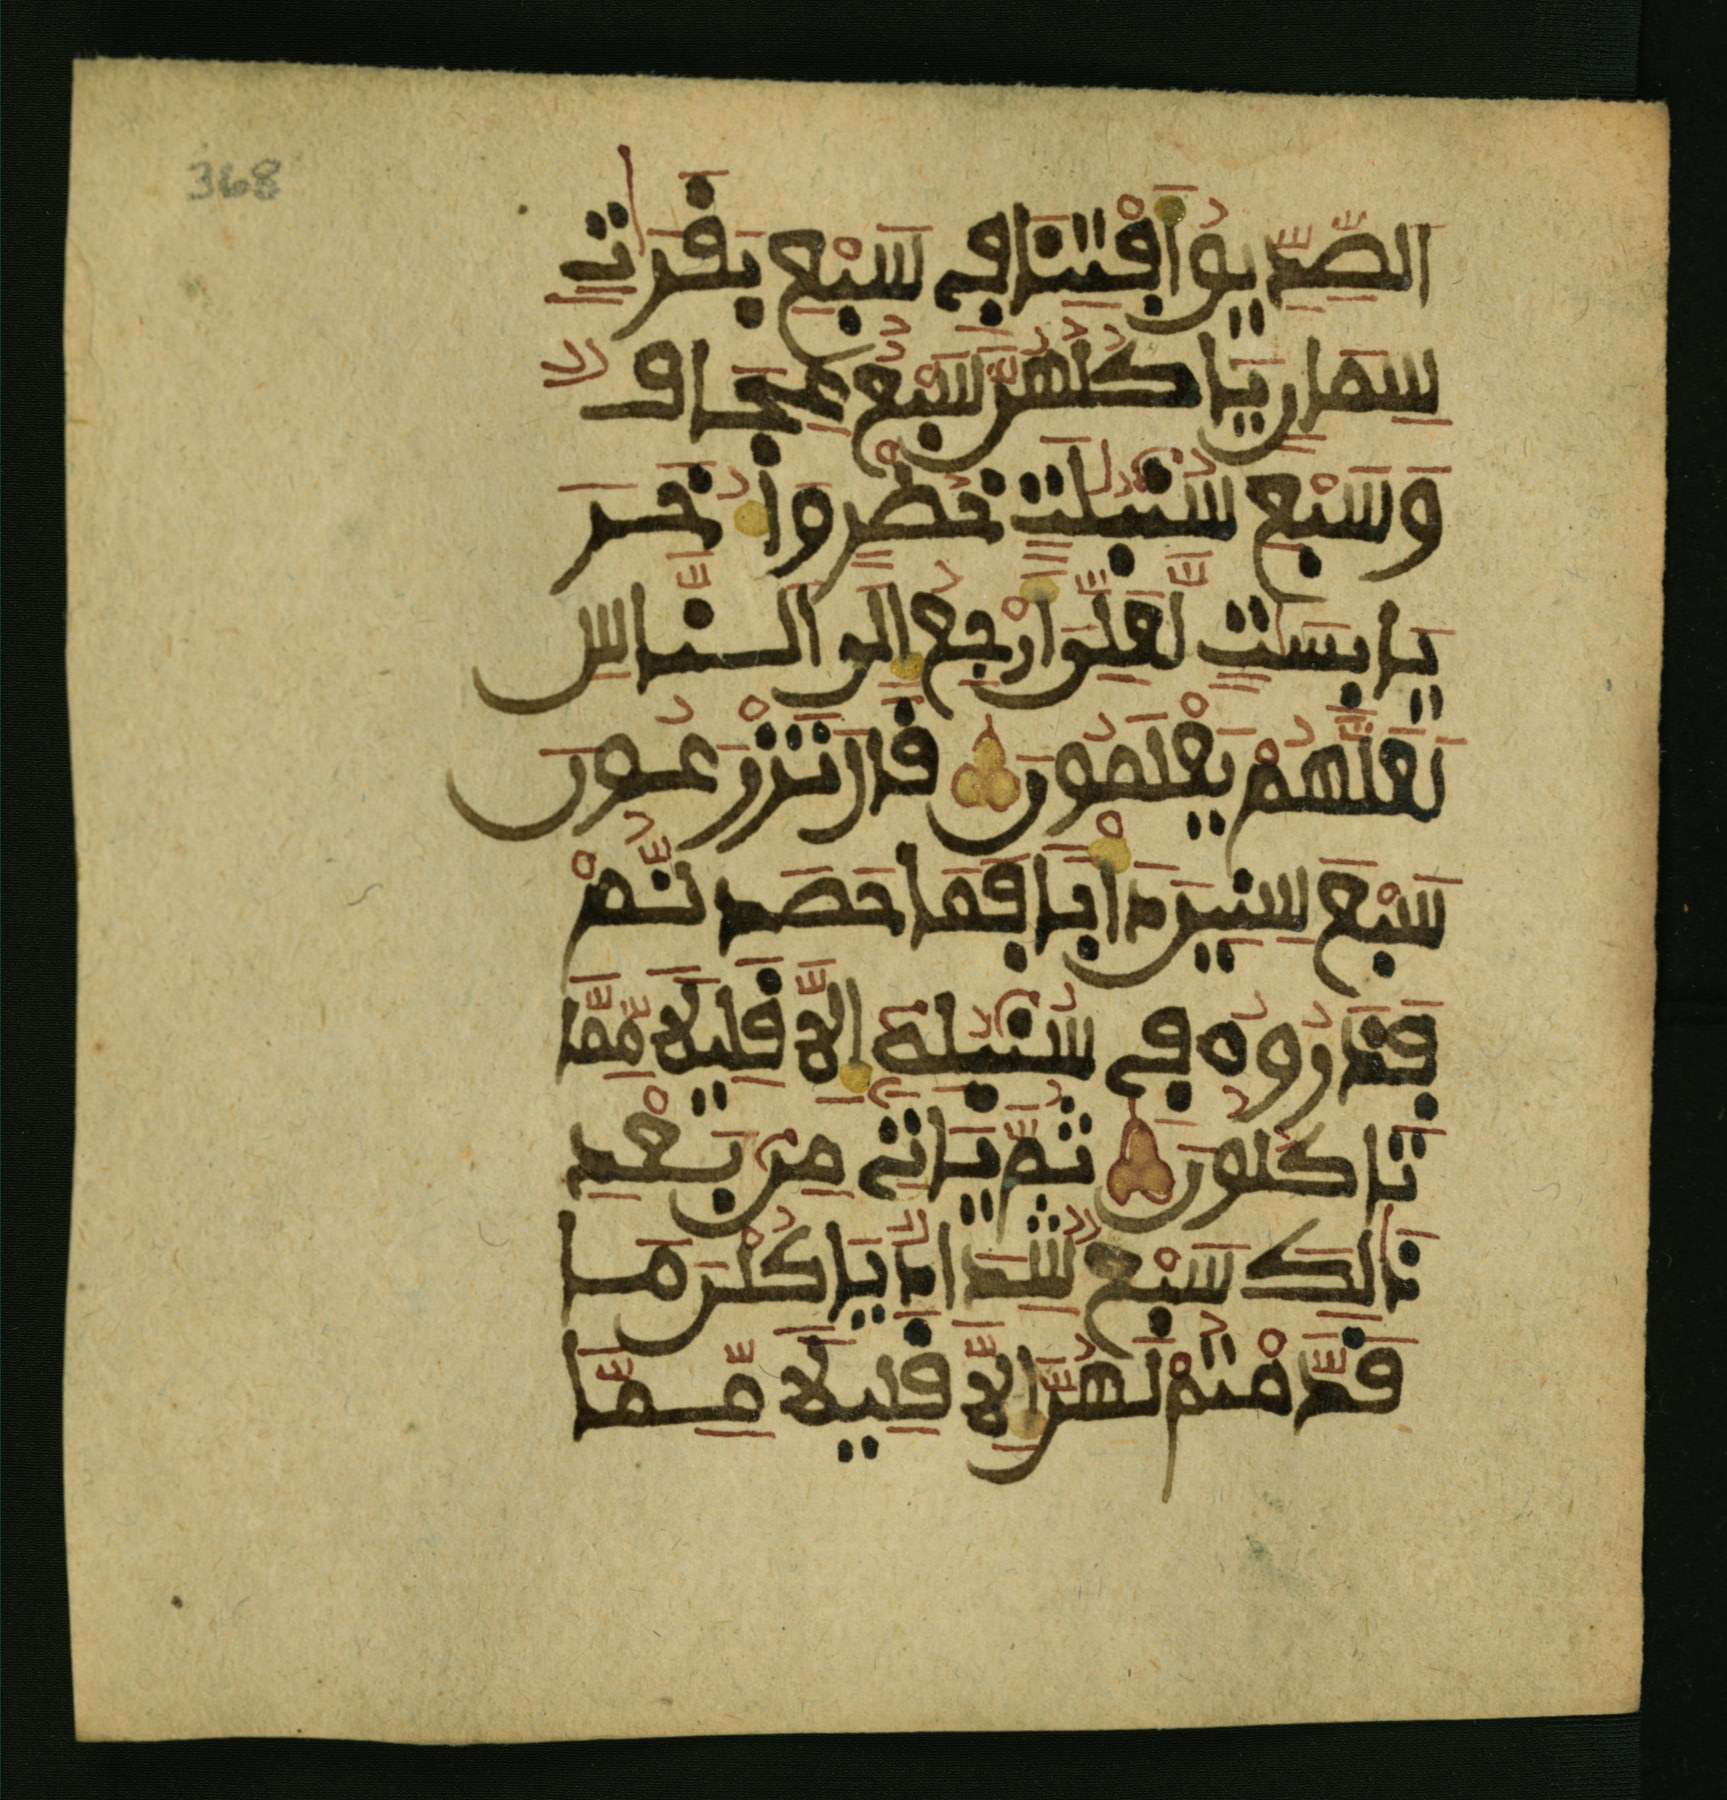 368
الصِّدِّيقُ أَفْتِنَا فِي سَبْعِ بَقَرَٰتٖ
سِمَانٖ يَاكُلُهُنَّ سَبْعٌ عِجَافٞ
وَسَبْعِ سُنۢبُلَٰتٍ خُضْرٖ وَأُخَرَ
يَابِسَٰتٖ لَّعَلِّيَ أَرْجِعُ إِلَى النَّاسِ
لَعَلَّهُمْ يَعْلَمُونَ قَالَ تَزْرَعُونَ
سَبْعَ سِنِينَ دَأْبٗا فَمَا حَصَدتُّمْ
فَذَرُوهُ فِي سُنۢبُلِهِ إِلَّا قَلِيلٗا مِّمَّا
تَاكُلُونَ ثُمَّ يَاتِي مِنۢ بَعْدِ
ذَٰلِكَ سَبْعٞ شِدَادٞ يَاكُلْنَ مَا
قَدَّمْتُمْ لَهُنَّ إِلَّا قَلِيلٗا مِّمَّا